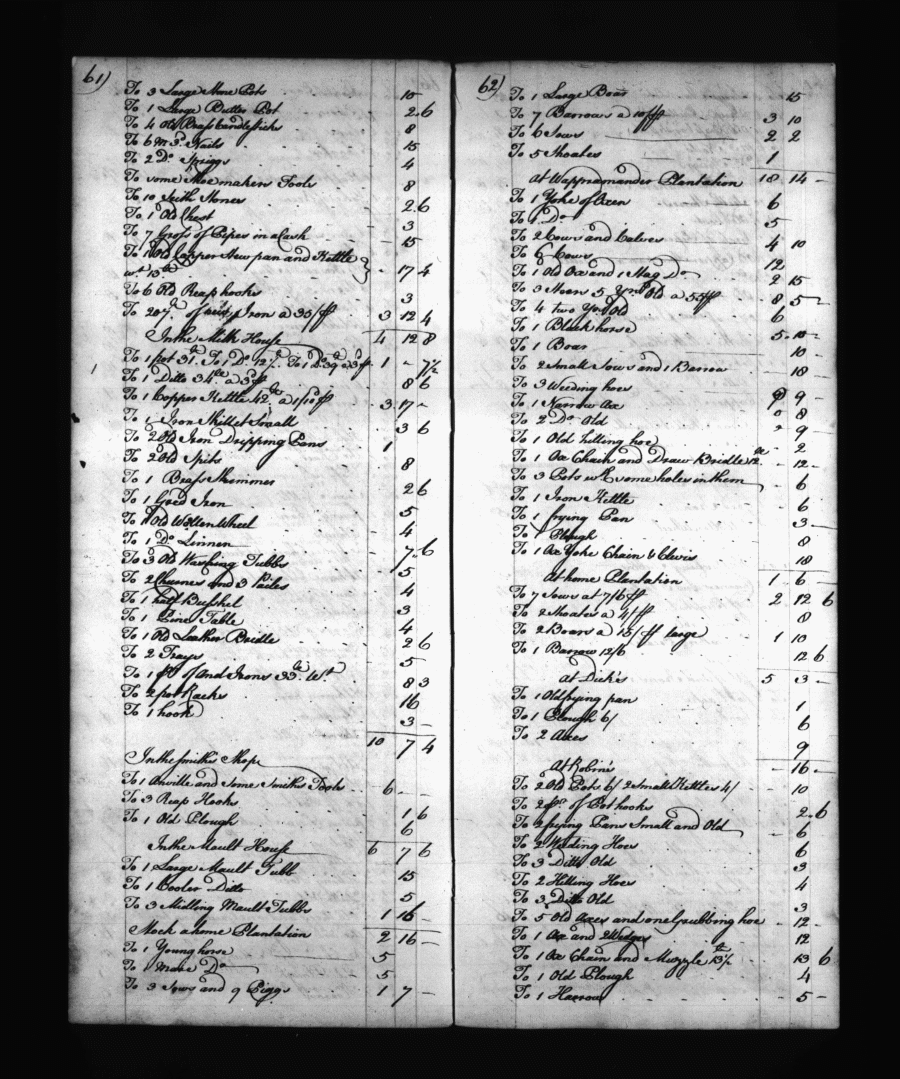 61)
To 3 Large Stone Pots 10
To 1 Large Butter Pot 2.6
To 4 Old Brass Candlesticks 8
To 6 M 3d. Nails 15
To 2 Do. Spriggs 4
To some Shoemakers Tools 8
To 10 Scith Stones 2.6
To 1 Old Chest 3
To 7 Gross of Pipes in a Cask 15
To 1 Old Copper Stew pan and Kettle
wt. 13 lb - 17 4
To 6 Old Reap hooks 3
To 2 of Iron a 35/ 3 12 4
In the Milk House 4 12 8
To 1 pot 31 lb. To 1 Do. To 1 Do 39 a 3d 1 - 7 1/2
To 1 Ditto 34 lb a 3d 8 6
To 1 Copper Kettle 42 lb a 1/10 3 17 -
To 1 Iron Skillet Small 3 6
To 2 Old Iron Dripping Pans 1
To 2 Old Spits 8
To 1 Brass Skimmer 2 6
To 1 Gred Iron 5
To 1 Old Wollen Wheel 4
To 1 Do. Linnen 7. 6
To 3 Old Washing Tubbs 5
To 2 Churnes and 3 Pailes 4
To 1 half Bushel 3
To 1 Pine Table 4
To 1 Old Leather Bridle 2 6
To 2 Trays 5
To 1 pr of And Irons 33 lb. Wt 8 3
To 2 pot Racks 16
To 1 hook 3 -
10 7 4
In the smith's Shop
To 1 Anville and Some Smiths Tools 6 - -
To 3 Reap Hooks 1 6
To 1 Old Plough 6
In the Mault House 6 7 6
To 1 Large Mault Tubb 15
To 1 Cooler Ditto 5
To 3 Midling Mault Tubbs 1 16 -
Stock a home Plantation 2 16 -
To 1 Young horse 5
To 1 Mare Do 5
To 3 Sows and 9 Piggs 1 7 -
62)
To 1 Large Boar 15
To 7 Barrows a 10/ 3 10
To 6 Sows 2 2
To 5 Shoates 1
At Wappnamander Plantation 18 14 -
To 1 Yoke of Oxen 6
To 1 Do 5
To 2 Cows and Calves 4 10
To 6 Cows 12
To 1 Old Ox and 1 Stag Do 2 15
To 3 Steers 5 Yrs Old a 55/ 8 5 -
To 4 two Yrs Old 6
To 1 Black horse 5 10 -
To 1 Boar 10 -
To 2 Small Sows and 1 Barrow 18 -
To 3 Weeding hoes 9 -
To 1 Narrow Ax 8
To 2 Do Old 9
To 1 Old hilling hoe 2
To 1 Ox Chain and Draw Bridle 12 lb - 12 -
To 3 Pots wth some holes in them - 6
To 1 Iron Kettle 6
To 1 frying Pan 3 -
To 1 Plough 8
To 1 Ox Yoke Chain & Clevis 18
At home Plantation 1 6 -
To 7 Sows at 7/6 2 12 6
To 2 Shoates a 4/ 8
To 2 Boars a 15/ large 1 10
To 1 Barrow 12/6 12 6
At Dick's 5 3 -
To 1 Old frying pan 1
To 1 Plough 6/ 6
To 2 Axes 9
At Robin's - 16 -
To 2 Old Pots 6/ 2 Small Kettles 4/ 10
To 2 pr. of Pot hooks 2.6
To 2 frying Pans Small and Old - 6
To 2 Weeding Hoes 6
To 3 Ditto Old 3
To 2 Hilling Hoes 4
To 3 Ditto Old 3
To 5 Old Axes and one Grubbing hoe - 12 -
To 1 Ax and 2 Wedges 12
To 1 Ox Chain and Muzzle 13 6
To 1 Old Plough 4
To 1 Harrow 5 -